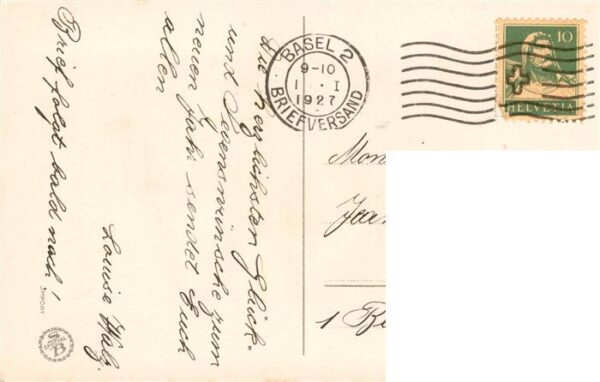 Die herzlichsten Glück-
und Segenswünsche zum
neuen Jahr sendet Euch
allen
Louise Wälz.
Brief folgt bald nach!
BASEL 2
9-10
1 . I
1927
BRIEFVERSAND
10
HELVETIA
Mon
Jea
1
IMPORT